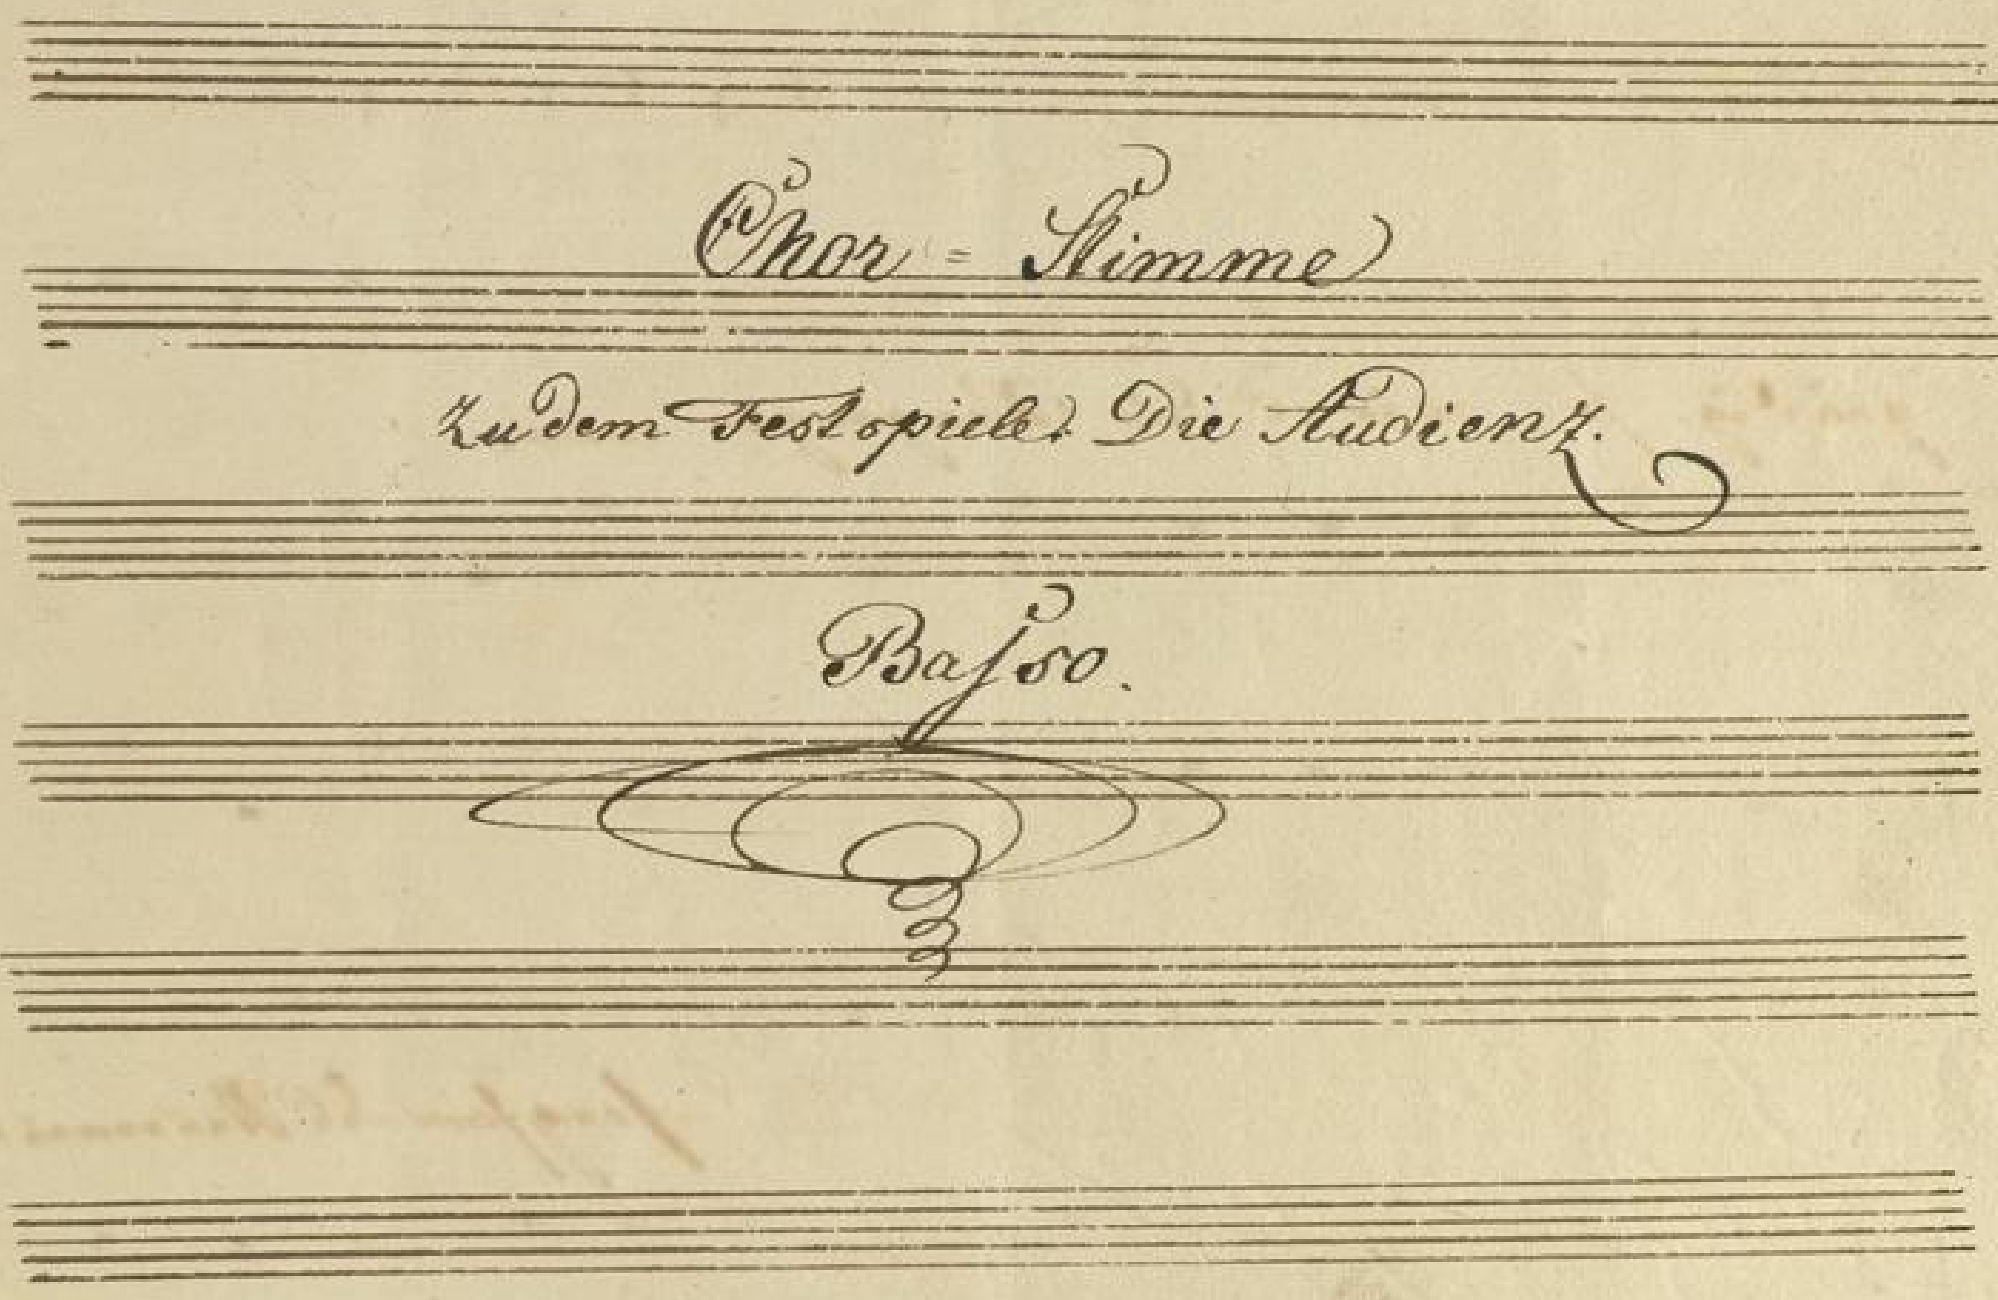 Chor = Stimme
zu dem Festspiele: Die Audienz.
Baſso.